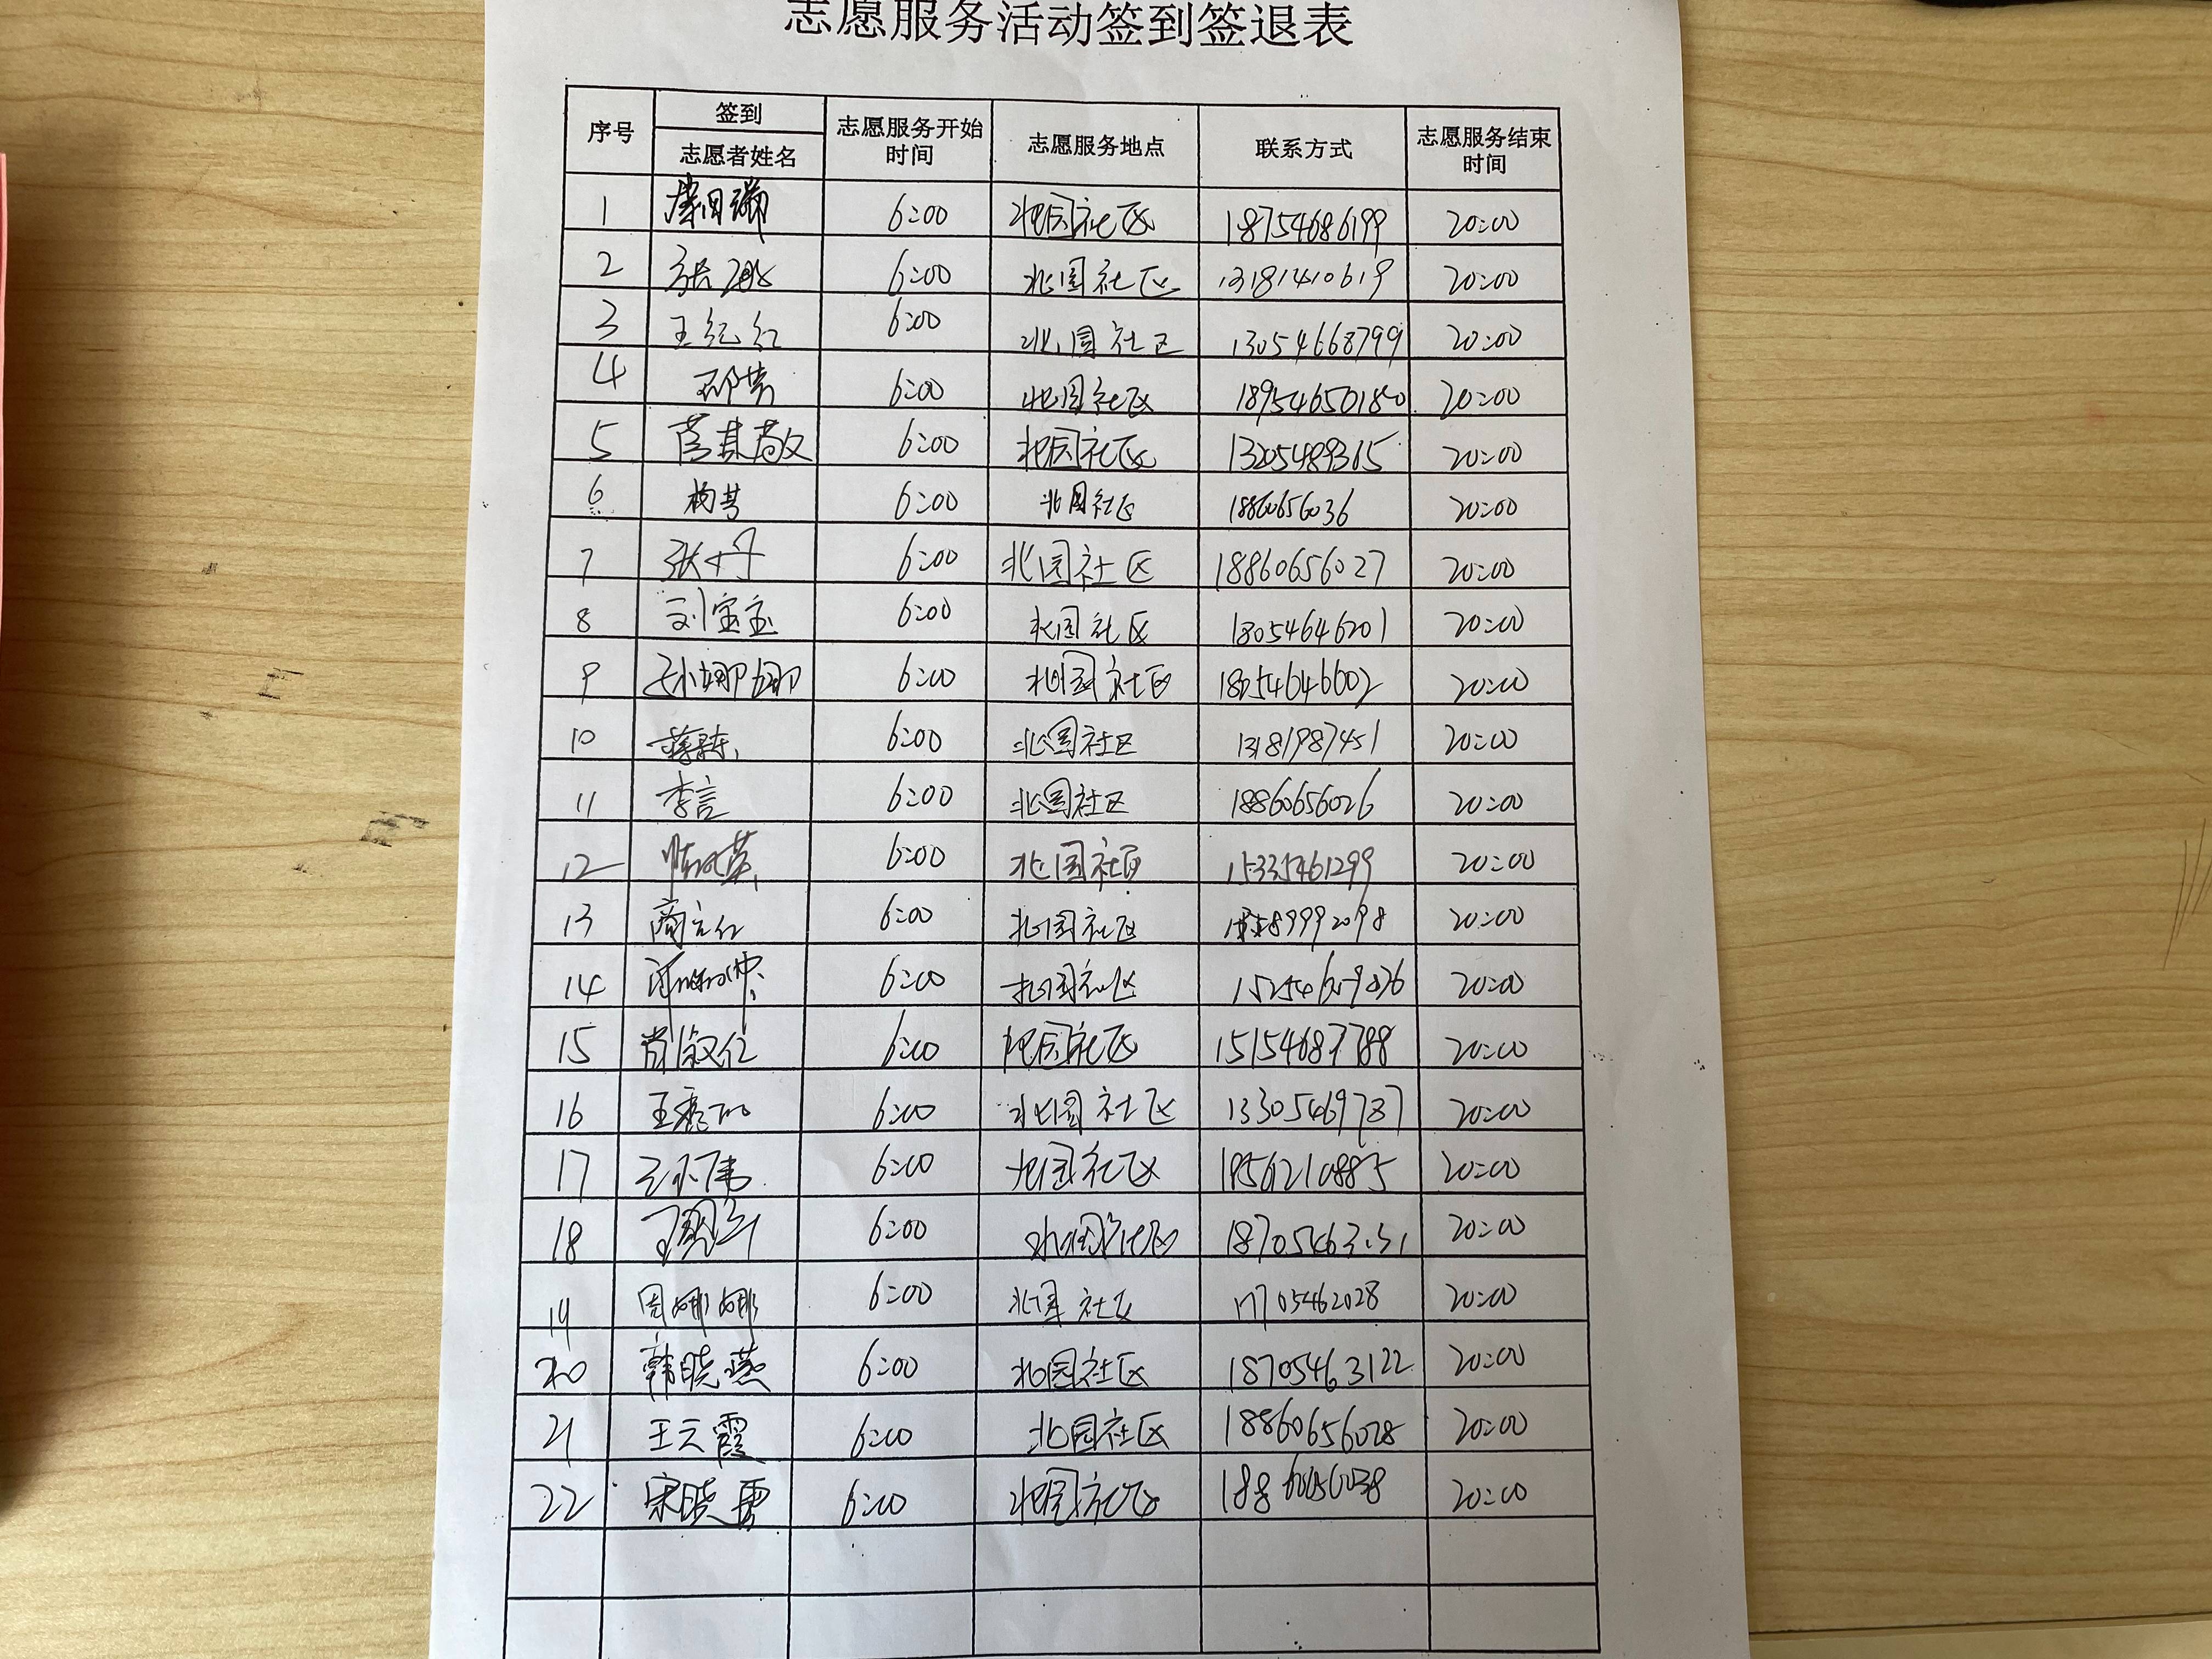 志愿服务活动签到签退表
序号 签到 志愿者姓名 志愿服务开始时间 志愿服务地点 联系方式 志愿服务结束时间
1 6:00 北园社区 18754686199 20:00
2 6:00 北园社区 13181410619 20:00
3 王纪红 6:00 北园社区 13054668799 20:00
4 6:00 北园社区 18954650180 20:00
5 6:00 北园社区 13205489315 20:00
6 6:00 北园社区 18860656036 20:00
7 张丹 6:00 北园社区 18860656027 20:00
8 刘宝玉 6:00 北园社区 18054646201 20:00
9 孙娜娜 6:00 北园社区 18054646602 20:00
10 6:00 北园社区 13181987451 20:00
11 李言 6:00 北园社区 18860656026 20:00
12 6:00 北园社区 15335461299 20:00
13 商立红 6:00 北园社区 20:00
14 6:00 北园社区 20:00
15 肖叙仁 6:00 北园社区 15154687788 20:00
16 6:00 北园社区 13305469787 20:00
17 6:00 北园社区 19562108885 20:00
18 6:00 北园社区 20:00
19 周娜娜 6:00 北园社区 17705462028 20:00
20 韩晓燕 6:00 北园社区 18705463122 20:00
21 王云霞 6:00 北园社区 18860656028 20:00
22 宋晓雪 6:00 北园社区 18860656038 20:00